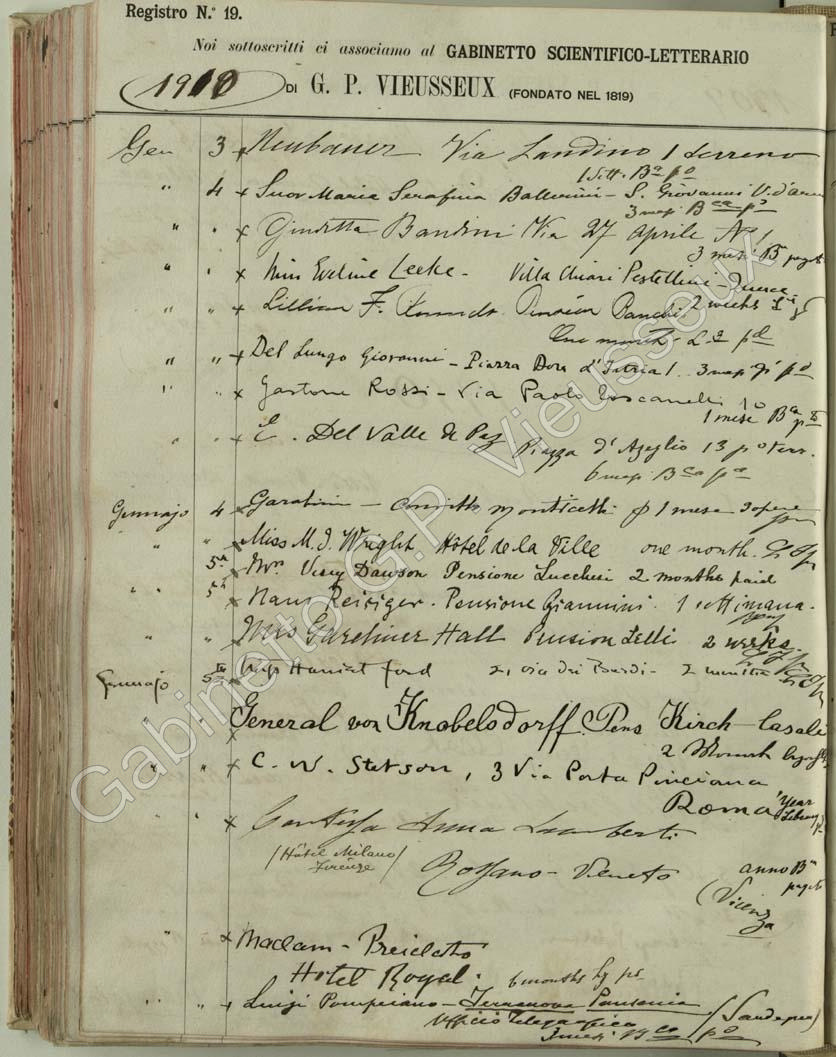 Registro N.º 19.
Noi sottoscritti ci associamo al GABINETTO SCIENTIFICO-LETTERARIO
1910 DI G. P. VIEUSSEUX (FONDATO NEL 1819)
Gen 3 x Neubauer Via Landino 1 terreno
1 Sett. Bª pº
" 4 x Suor Maria Serafina Ballerini - S. Giovanni V. d'arno
3 mesi Bca pº
" " x Giuditta Bandini Via 27 Aprile Nº 1
3 mesi Bª pagato
" " x Miss Eveline Leeke - Villa Chiari Pestellini -
" " x Lillian F. Pensione Banchi 2 weeks
One month L.2 pd
" " x Del Lungo Giovanni - Piazza Dora d'Istria 1. 3 mesi pº
" " x Gastone Rossi - Via Paolo Toscanelli 10
1 mese Bª
" " x E. Del Valle de Paz Piazza d'Azeglio 13 pº terr.
6 mesi Bca pº
Gennajo 4 x 1 mese 3 opere
" " x Miss M. J. Wright Hôtel de la Ville one month.
" " 5 Mrs Dawson Pensione Lucchesi 2 months paid
5 x Hans Reisiger. Pensione Giannini. 1 settimana.
" " x Mrs Gardiner Hall Pension Lelli 2 weeks
Gennajo 5 x Miss Harriet Ford 21 via dei Bardi - 2 months
" " x General von Knobelsdorff. Pens Kirch - Casali
2 Monat
" " x C. W. Stetson, 3 Via Porta Pinciana
Roma 1 Year
Library
" " x Contessa Anna Lamberti
(Hôtel Milano) Rossano - Veneto anno Bª
Firenze pagato
(Vicenza
" x Madam -
Hotel Royal. 6 months
" " x Luigi Pompeiano - Terranova Pausania
Ufficio Telegrafico
3 mesi Bca pº
Gabinetto G.P. Vieusseux